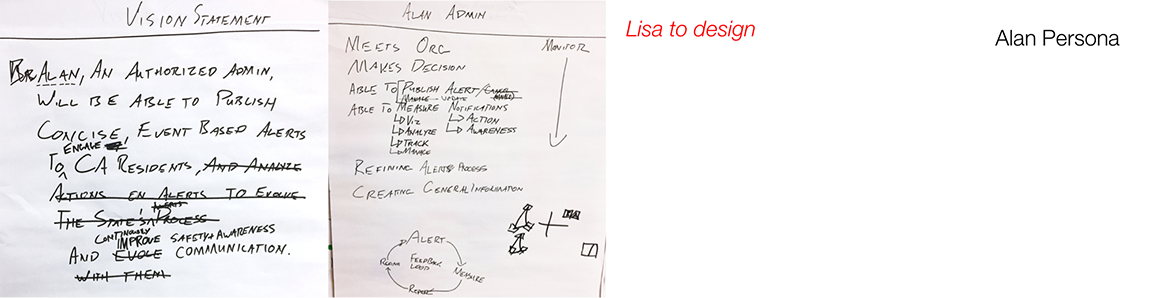 VISION STATEMENT
FOR ALAN, AN AUTHORIZED ADMIN,
WILL BE ABLE TO PUBLISH
CONCISE, EVENT BASED ALERTS
ENGAGE
TO CA RESIDENTS, AND ANALYZE
ACTIONS ON ALERTS TO EVOLVE
ALERTS
THE STATE'S PROCESS
CONTINUOUSLY
IMPROVE SAFETY + AWARENESS
AND EVOLVE COMMUNICATION.
WITH THEM
ALAN ADMIN
MEETS ORG
MONITOR
MAKES DECISION
ABLE TO PUBLISH ALERT/
MANAGE UPDATE
ABLE TO MEASURE NOTIFICATIONS
VIZ
ACTION
ANALYZE
AWARENESS
TRACK
MANAGE
REFINING ALERTS PROCESS
CREATING GENERAL INFORMATION
ALERT
FEEDBACK
LOOP
REFINE
MEASURE
REPORT
Lisa to design
Alan Persona